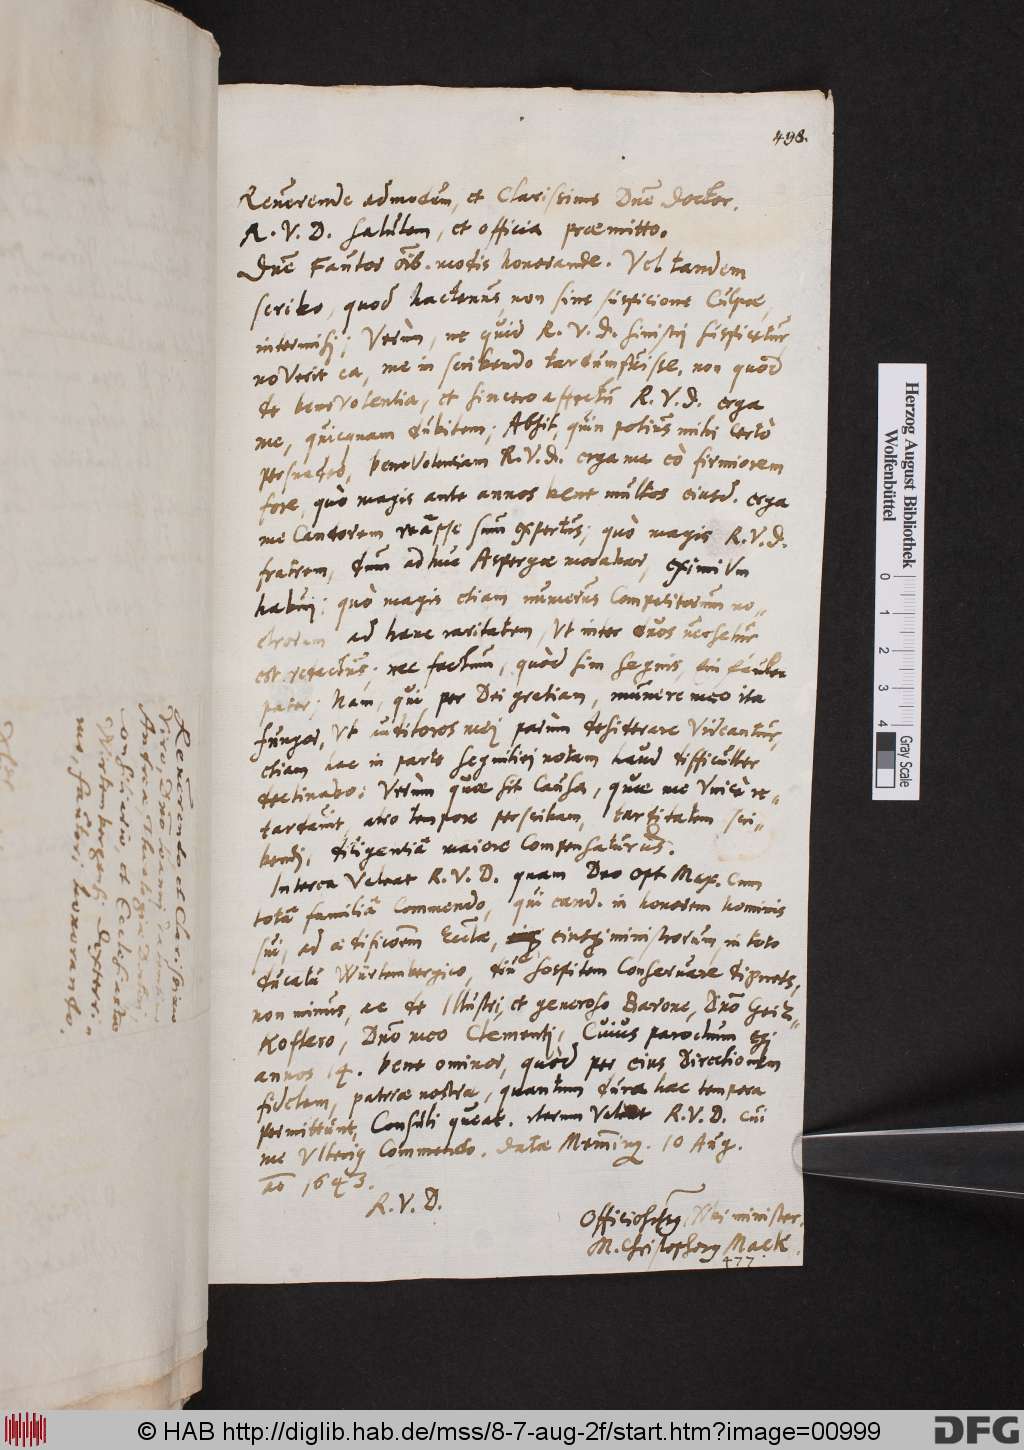 498.
Reverende admodum, et Clarissime Dne Doctor,
R. V. D. salutem, et officia præmitto.
Dne Fautor oib. modis honorande. Vel tandem
scribo, quod hactenus, non sine suspicione Culpæ,
intermisi; Verum, ne quid R. V. D. sinistri suspicetur,
noverit ea, me in scribendo tardum fuisse, non quod
de benevolentia, et sincero affectu R. V. D. erga
me, quicquam dubitem; Absit, quin potius mihi certò
persuadeo, benevolentiam R. V. D. erga me eò firmiorem
fore, quò magis ante annos bene multos eiusd. erga
me Candorem reapse sum expertus; quò magis R. V. D.
fratrem, dum adhuc Aspergæ morabar, eximium
habui; quò magis etiam numerus Competitorum no-
strorum ad hanc raritatem, Vt inter duos versetur
est redactus; nec factum, quòd sim segnis, ein fauler
pater; Nam, qui, per Dei gratiam, munere meo ita
fungor, Vt auditores mei parum desiderare Videantur,
etiam hac in parte segnitiei notam haud difficulter
declinabo; Verùm quæ sit causa, quæ me Vnicè re-
tardavit, alio tempore perscribam, tarditatem scri-
bendi, diligentiâ maiore Compensaturus.
Interea Valeat R. V. D. quam Deo Opt. Max. cum
totâ familiâ Commendo, qui eand. in honorem hominis
sui, ad ædificoem Eccliæ, eiusq ministrorum, in toto
ducatu Würtembergico, diu sospitem Conservare dignetur,
non minus, ac de Illustri, et generoso Barone, Dno Geiz-
Koflero, Dno meo Clementi, Cuius parochum egi
annos 14. bene ominor, quòd per eius Directionem
fidelem, patriæ nostræ, quantum dura hæc tempora
permittunt, Consuli queat. iterum Valeat R. V. D. cui
me Vlterius Commendo. Datæ Memming. 10 Aug.
ao 1643.
R. V. D.
Officiosus
minister.
M. Christophorus Mack.
477
Reverendo et Clarissimo
Viro, Dno Ioanni Valentino
Andreæ Theologiæ Doctori,
Consiliario, et Ecclesiastæ
Wirtembergensi
suo, fautori, honorando.
Herzog August Bibliothek
Wolfenbüttel
0 1 2 3 4
Gray Scale
© HAB http://diglib.hab.de/mss/8-7-aug-2f/start.htm?image=00999
DFG